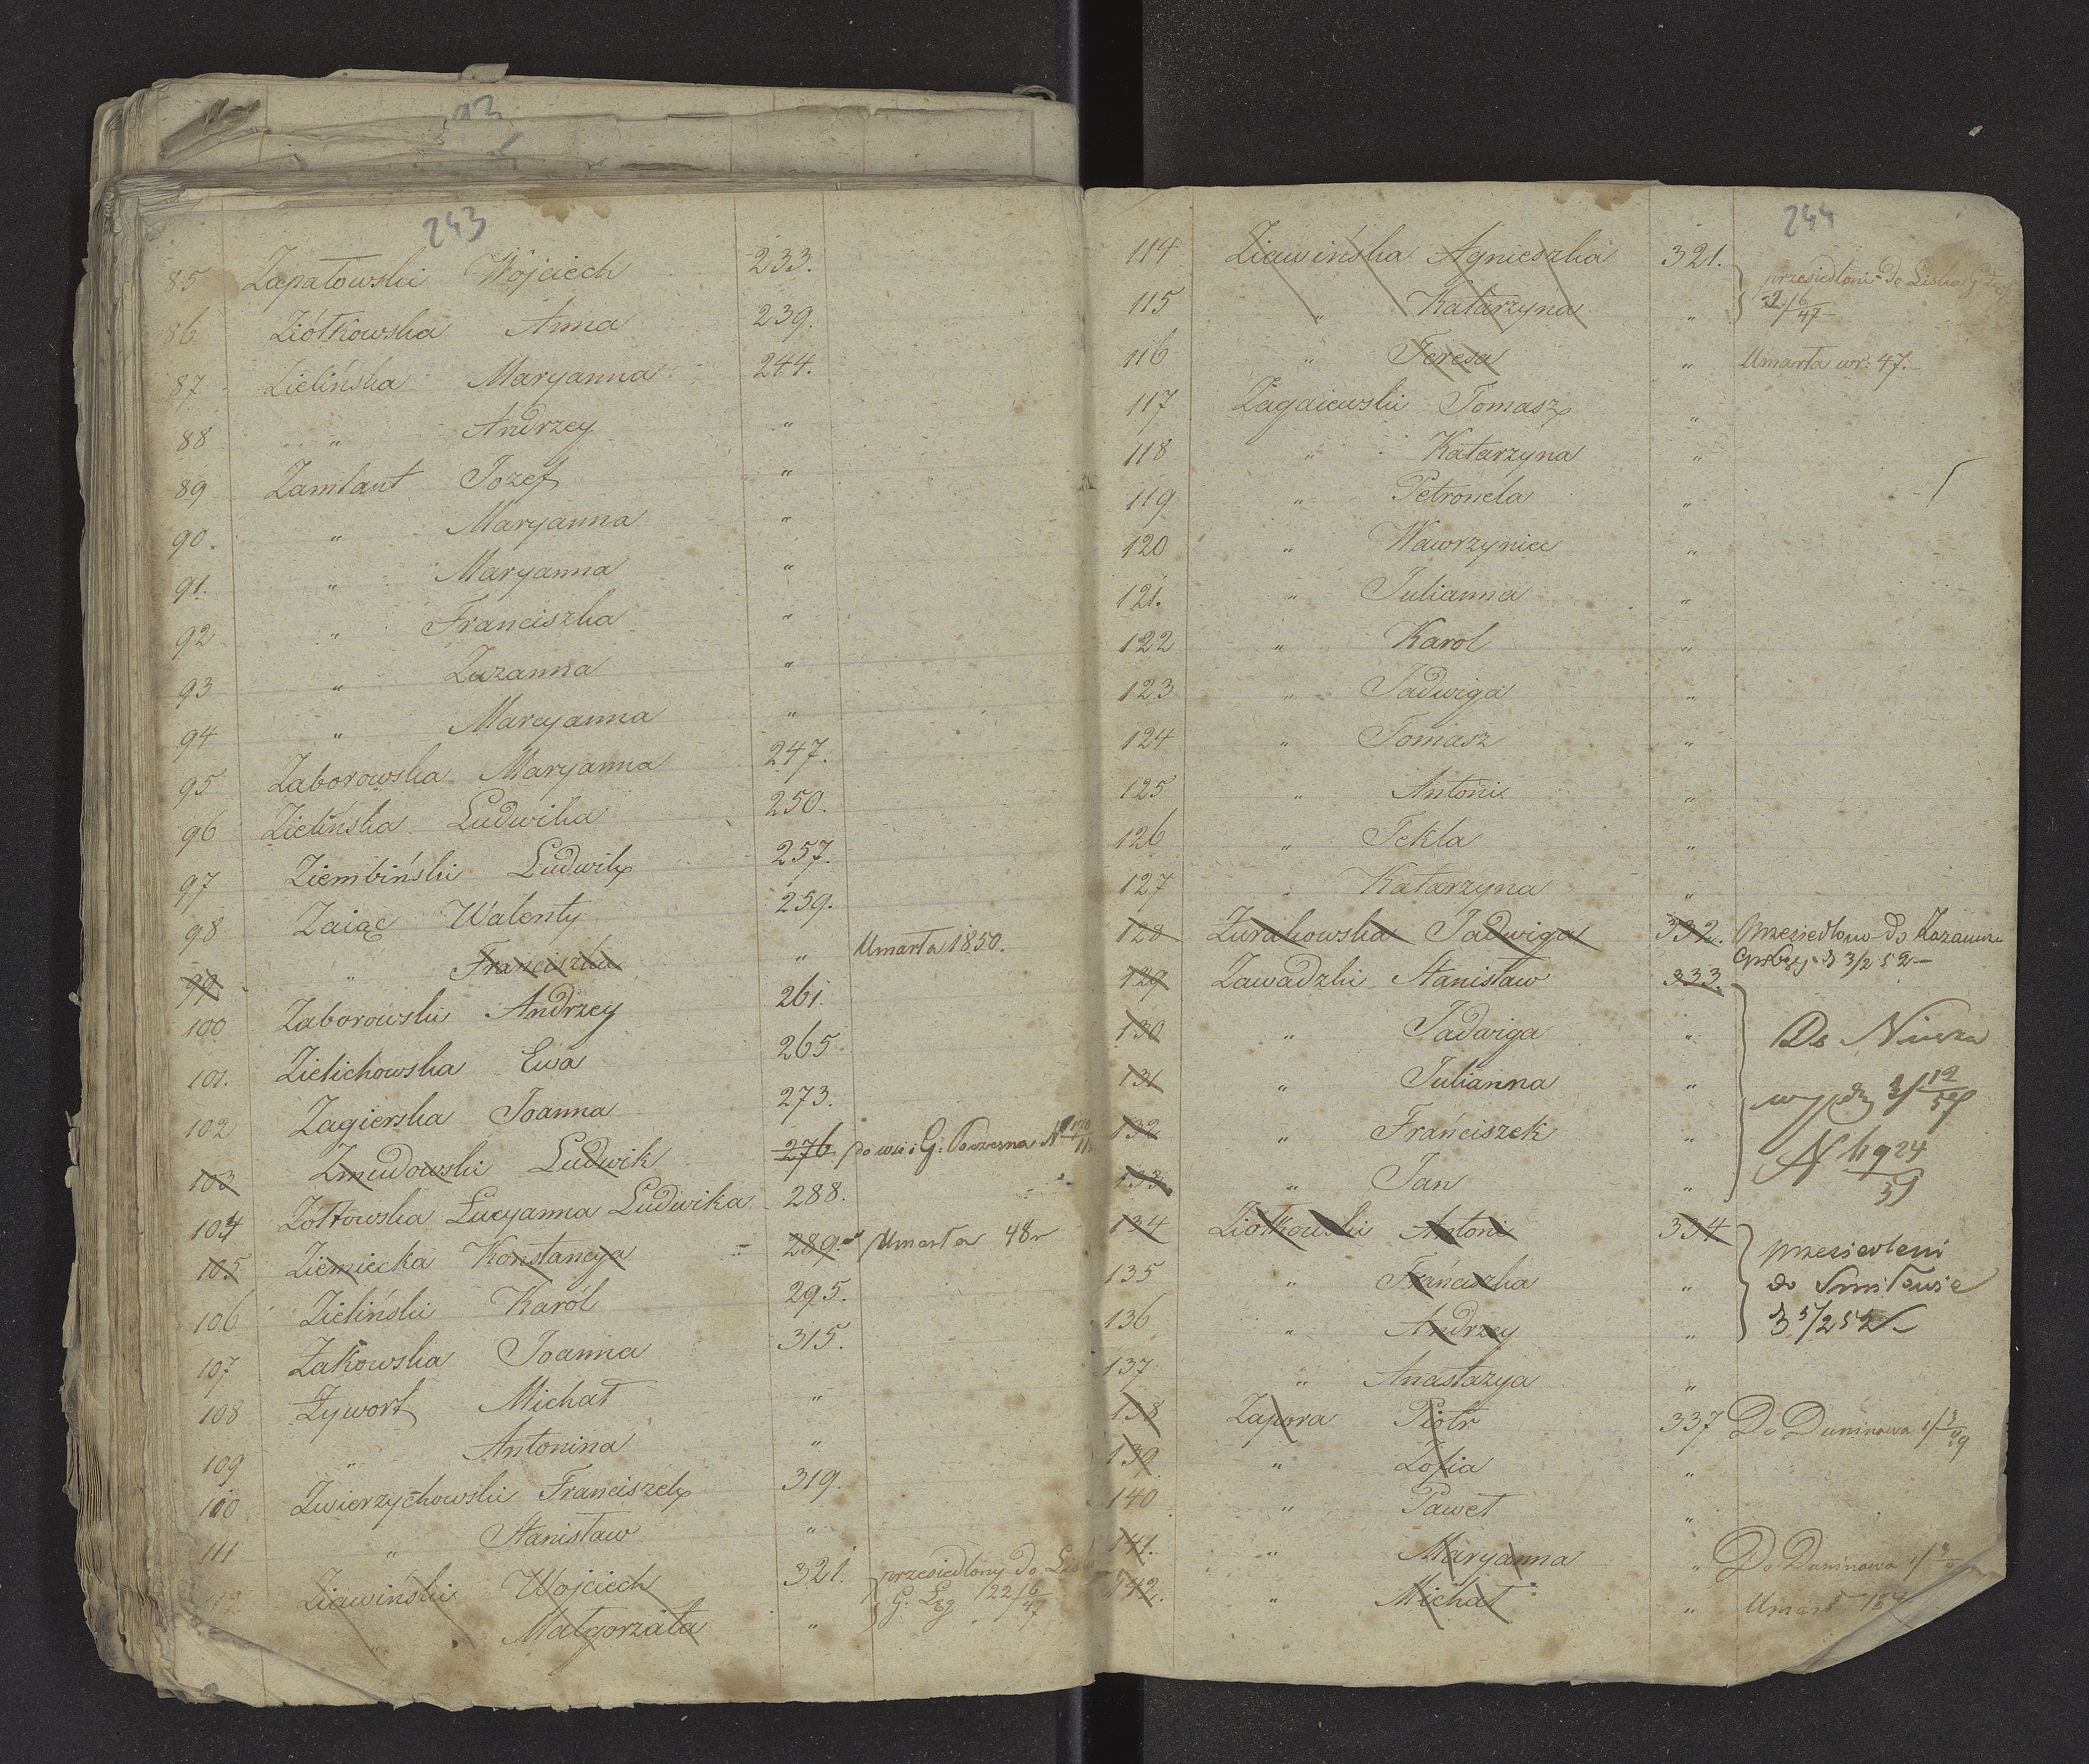 93
243
85 Zapałowski Wojciech 233.
86 Ziółkowska Anna 239.
87 Zielińska Maryanna 244.
88 " Andrzey "
89 Zamłaut Jozef "
90. " Maryanna "
91. " Maryanna "
92 " Franciszka "
93 " Zuzanna "
94 " Maryanna "
95 Zaborowska Maryanna 247.
96 Zielińska Ludwika 250.
97 Ziembiński Ludwik 257.
98 Zaiąc Walenty 259.
99 " Franciszka " Umarła 1850.
100 Zaborowski Andrzey 261.
101. Zielichowska Ewa 265.
102 Zagierska Joanna 273.
103 Zmudowski Ludwik 276 do wsi G:
104 Żółtowska Lucyanna Ludwika 288.
105 Ziemiecka Konstancya 289. Umarła 48r
106 Zieliński Karól 295.
107 Żakowska Joanna 315.
108 Żywort Michał "
109 " Antonina "
110 Zwierzychowski Franciszek 319.
111 " Stanisław "
112 Ziawiński Wojciech 321. przesiedlony do
" Małgorzata " G. Łęg 22/6 47
244
114 Ziawińska Agnieszka 321. przesiedloni do
115 " Katarzyna " 22/6 47
116 " Teresa " Umarła wr: 47.
117 Zagaiewski Tomasz "
118 " Katarzyna "
119 " Petronela "
120 " Wawrzyniec "
121. " Julianna "
122 " Karol "
123 " Jadwiga "
124 " Tomasz "
125 " Antoni "
126 " Tekla "
127 " Katarzyna "
128 Zurakowska Jadwiga 332. Przesiedlono do
d 3/2 52
129 Zawadzki Stanisław 333.
130 " Jadwiga " Do
131 " Julianna "
132 " Franciszek "
133 " Jan "
134 Ziołkowski Antoni 334
135 " Franciszka " przesiedleni
136 " Andrzey " do Smiłowic
d 5/2 52
137 " Anastazya "
138 Zapora Piotr 337 Do Duninowa 1/3 49
139 " Zofia "
140 " Paweł "
141. " Maryanna " Do Duninowa
142. " Michał " Umarł